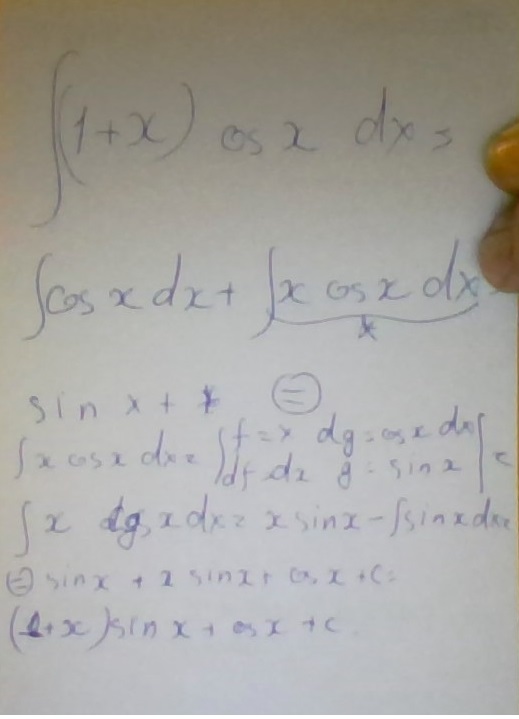 ∫(1+x) cos x dx =
∫cos x dx + ∫x cos x dx =
*
sin x + * ⊜
∫x cos x dx = | f = x dg = cos x dx | =
| df = dx g = sin x |
∫ x x dx = x sin x - ∫sin x dx =
⊜ sin x + x sin x + cos x + c =
(1+x) sin x + cos x + c.